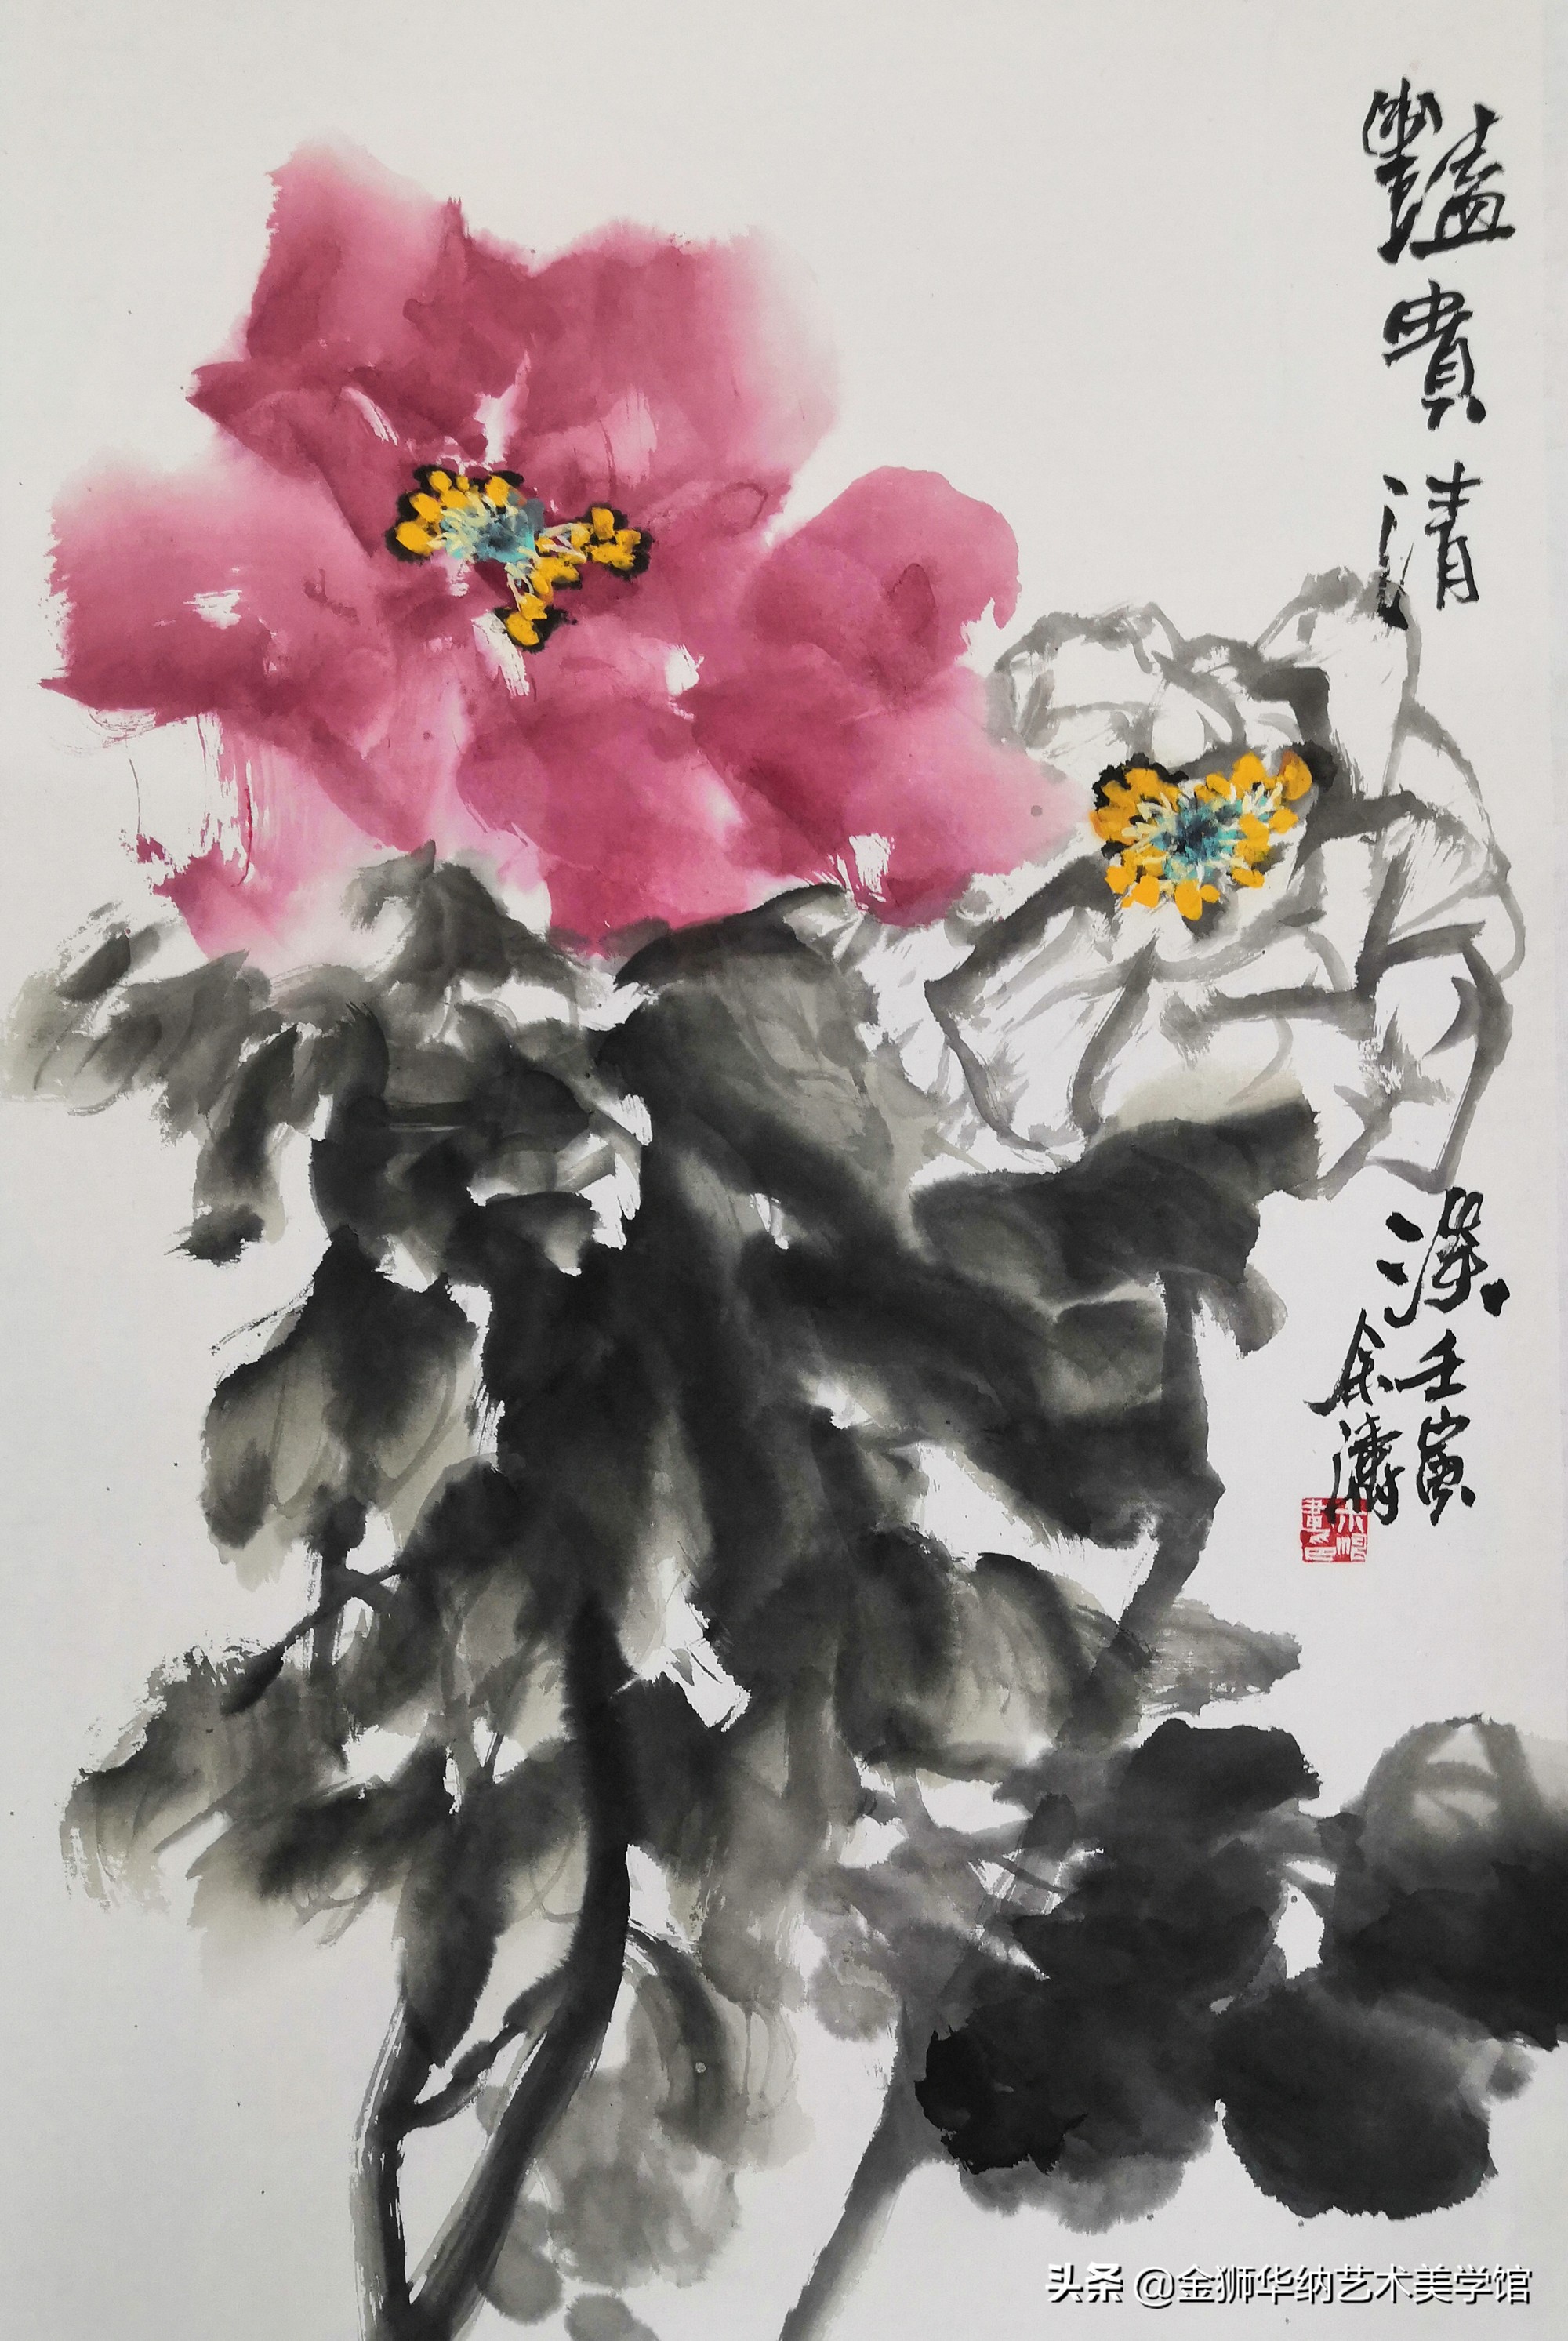 豔貴清
壬寅
余濤
头条 @金狮华纳艺术美学馆